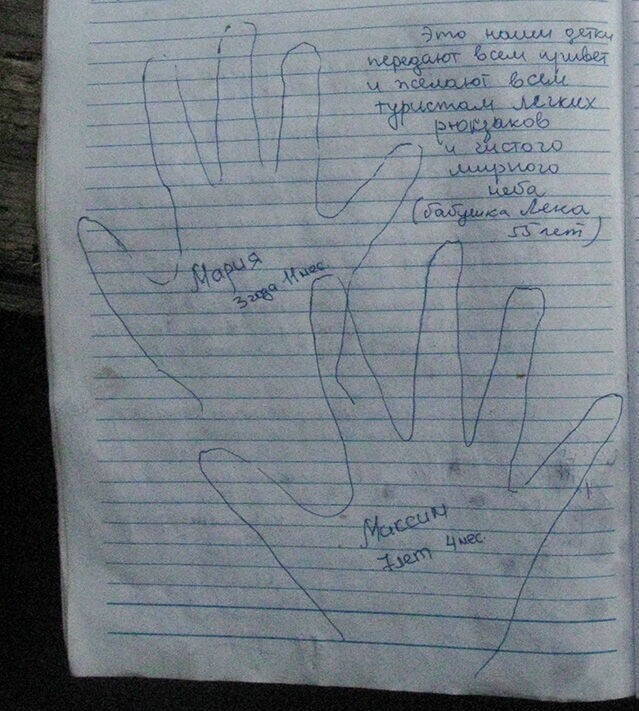 Это наши детки
передают всем привет
и желают всем
туристам легких
рюкзаков
и чистого
мирного
неба
(бабушка Лена
55 лет)
Мария
3 года 11 мес.
Максим
7 лет 4 мес.